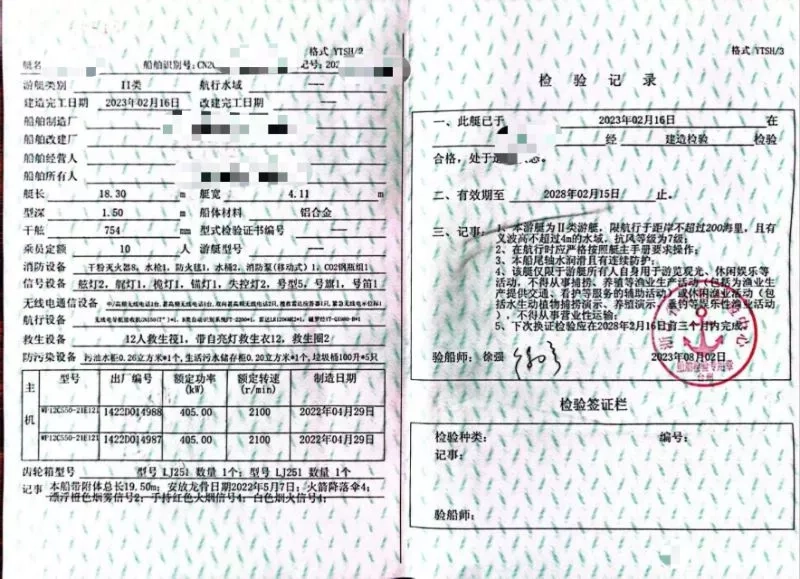 格式 YTSH/2
艇名 船舶识别号:CN20 记号:202
游艇类别 II类 航行水域 ---
建造完工日期 2023年02月16日 改建完工日期 ---
船舶制造厂
船舶改建厂
船舶经营人
船舶所有人
艇长 18.30 m 艇宽 4.11 m
型深 1.50 m 船体材料 铝合金
干舷 754 mm 型式检验证书编号 ---
乘员定额 10 人 游艇型号 ---
消防设备 干粉灭火器8, 水枪1, 防火毯1, 水桶2, 消防泵(移动式)1, CO2钢瓶组1
信号设备 舷灯2, 艉灯1, 桅灯1, 锚灯1, 失控灯2, 号型5, 号旗1, 号笛1
无线电通信设备
航行设备
救生设备 12人救生筏1, 带自亮灯救生衣12, 救生圈2
防污染设备 污油水柜0.26立方米*1个,生活污水储存柜0.20立方米*1个,垃圾桶100升*5只
主机 型号 出厂编号 额定功率(kW) 额定转速(r/min) 制造日期
WP12C550-21E121 1422D014988 405.00 2100 2022年04月29日
WP12C550-21E121 1422D014987 405.00 2100 2022年04月29日
齿轮箱型号 型号 LJ251 数量 1个; 型号 LJ251 数量 1个
记事 本船带附体总长19.50m; 安放龙骨日期2022年5月7日; 火箭降落伞4;
漂浮橙色烟雾信号2; 手持红色火烟信号4; 白色烟火信号4;
格式 YTSH/3
检验记录
一、此艇已于 2023年02月16日 在
经 建造检验 检验
合格,处于
二、有效期至 2028年02月15日 止。
三、记事: 1、本游艇为II类游艇,限航行于距岸不超过200海里,且有
义波高不超过4m的水域,抗风等级为7级;
2、在航行时应严格按照艇主手册要求操作;
3、本船尾轴水润滑且有连续防护;
4、该艇仅限于游艇所有人自身用于游览观光、休闲娱乐等
活动,不得从事捕捞、养殖等渔业生产活动(包括为渔业生
产提供交通、看护等服务的辅助活动)或休闲渔业活动(包
括水生动植物捕捞演示、养殖演示、垂钓等娱乐性渔业活动)
,不得从事营业性运输;
5、下次换证检验应在2028年2月16日前三个月内完成。
验船师: 徐强 2023年08月02日
检验签证栏
检验种类: 编号:
记事:
验船师: